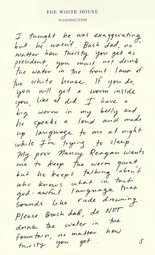 THE WHITE HOUSE
WASHINGTON
I thought he was exaggerating
but he wasn't. Bush dad, no
matter how thirsty you get as
president, you must not drink
the water in the front lawn of
the white house. If you do,
you will get a worm inside
you, like I did. I have a
big worm in my belly and
he speaks a loud and made
up language to me at night
while I'm trying to sleep.
My poor Nancy Reagan wants
me to keep the worm quiet,
but he keeps talking about
who knows what in that
god-awful language that
sounds like rude drawing
Please Bush dad, do NOT
drink the water in the
fountain, no matter how
thirsty you get
5